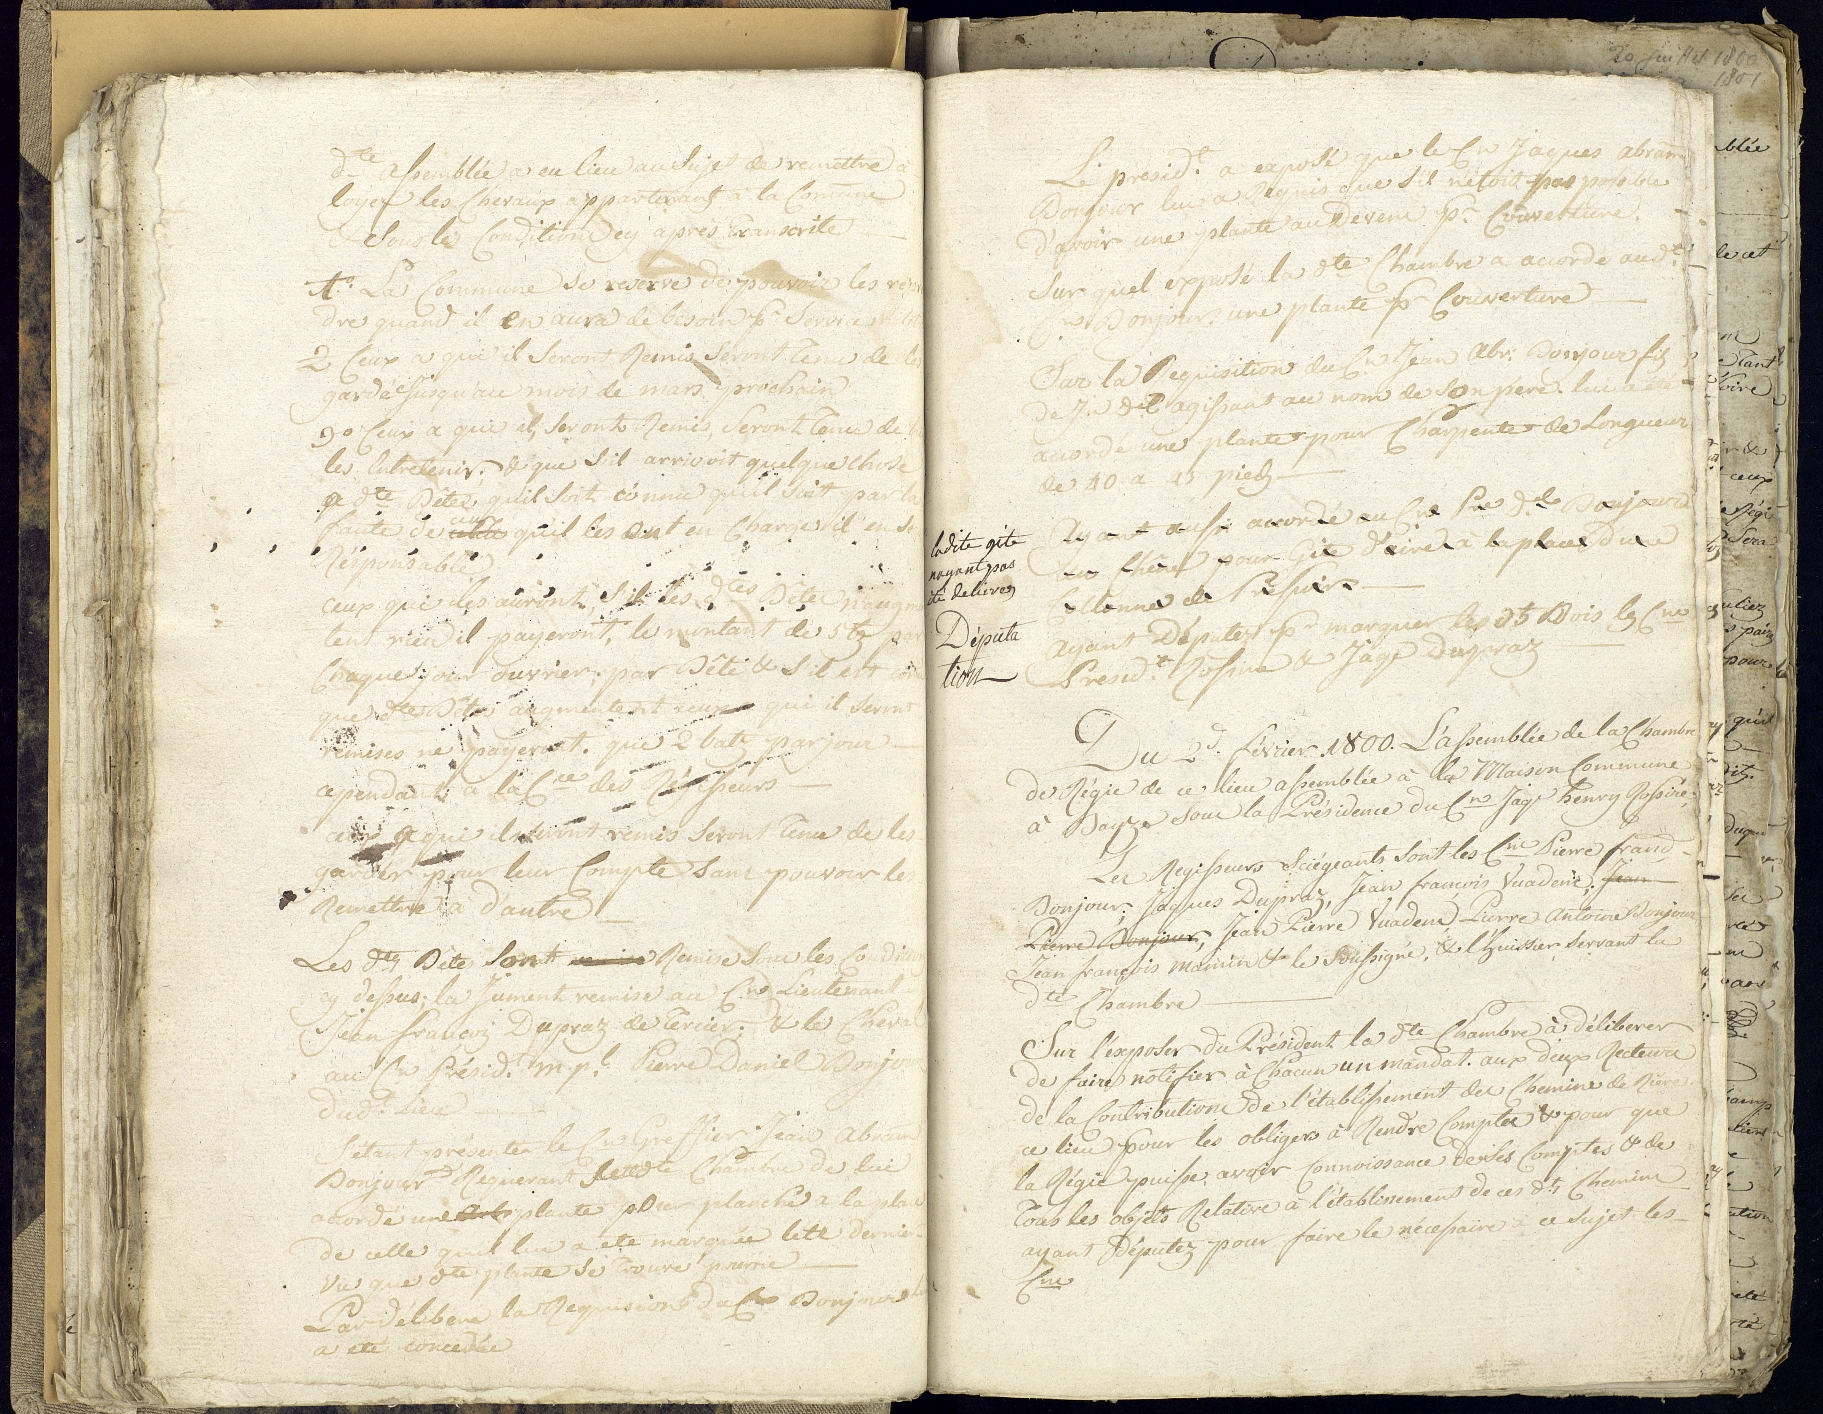 dte assemblée a eu lieu au Sujet de remettre à
loyer les Chevaux appartenant à la Commune
Sous les Conditions cy après transcrite
1o. La Commune Se reserve de pouvoir les
dre quand il en aura de besoin pr Servir
2 Ceux a qui il Seront Remis Seront tenu de les
garde Jusqu'au mois de mars prochain
3o Ceux a qui il Seront Remis, Seront tenu de
les Entretenir, & que S'il arrivoit quelque chose
a dte Bêtes, qu'il Soit connu qu'il Soit par la
faute de ceux qu'il les ont en Charge il en Se
Résponsable
ceux qui les auront, S'il les dtes Bête n'augm
tent rien il payeront, le montant de 5 bz par
Chaque jour ouvrier, par Bête & S'il est
que dtes Bête augmentent ceux qui il Seront
remises ne payeront que 2 batz par jour
cependant à la Cce des Régisseurs
ceux a qui il Seront remis Seront tenu de les
garder pour leur Compte Sans pouvoir les
Remettre à d'autre
Les dts Bête Sont Remise Sous les Condition
cy dessus, la Jument remise au Cn Lieutenant
Jean francoy Dupraz de tercier, & le Cheval
au Cn Présidt m.pl. Pierre Daniel Bonjour
dudt Lieu
S'étant présenter le Cn Greffier Jean Abram
Bonjour Requerant dte Chambre de lui
acordé une plante pour planche a la place
de celle qu'il lui a été marquée leté dernier
Vu que dte plante Se trouve pourrie
Par délibéré la Requision du Cn Bonjour lui
a été concedée
Le presidt a exposé que le Cn Jaques abram
Bonjour lui a Requis que S'il n'étoit pas possible
d'avoir une plante au Devens pr Couverture.
Sur quel exposé la dte Chambre a acordé audt
Cn Bonjour une plante pr Couverture
Sur la Requisition du Cn Jean Abr: Bonjour fils
de Jn Dl agissant au nom de Son père. lui a été
acordé une plante pour Charpente de Longueur
de 40 a 45 pieds
Ayant aussi accordé au Cn Pre Dl Bonjour
un Chêne pour Gite à la place d'une
Collonne de Pressoir
ladite gite
nayant pas
été delivrés
Députa
tion
ayant Députer pr marquer les dts Bois les Cns
Presidt Rossire & Jaqe Dupraz
Du 2d. février 1800. L'assemblée de la Chambre
de Régie de ce lieu assemblée à la Maison Commune
à Bayze Sous la Présidence du Cn Jaqe henry Rossire;
Les Régisseurs Sciégeants Sont les Cns Pierre francd
Bonjour, Jaques Dupraz, Jean francois Vuadens, Jean
Pierre Bonjour, Jean Pierre Vuadens Pierre antoine Bonjour
Jean françois mamin & le Soussigné, & l'Huissier Servant la
dte Chambre
Sur l'exposer du Président la dte Chambre à déliberer
de faire notifier à Chacun un mandat. aux deux Recteurs
de la Contributions de l'établissement des Chemins de Rière
ce lieu pour les obligers à Rendre Comptes & pour que
la Régie puisse avoir Connoissance de Ses Comptes & de
Tous les objets Relative à l'établissement de ces dts Chemins
ayant Députez pour faire le nécessaire à ce Sujet les
Cns
20 Juillet 1800
1801